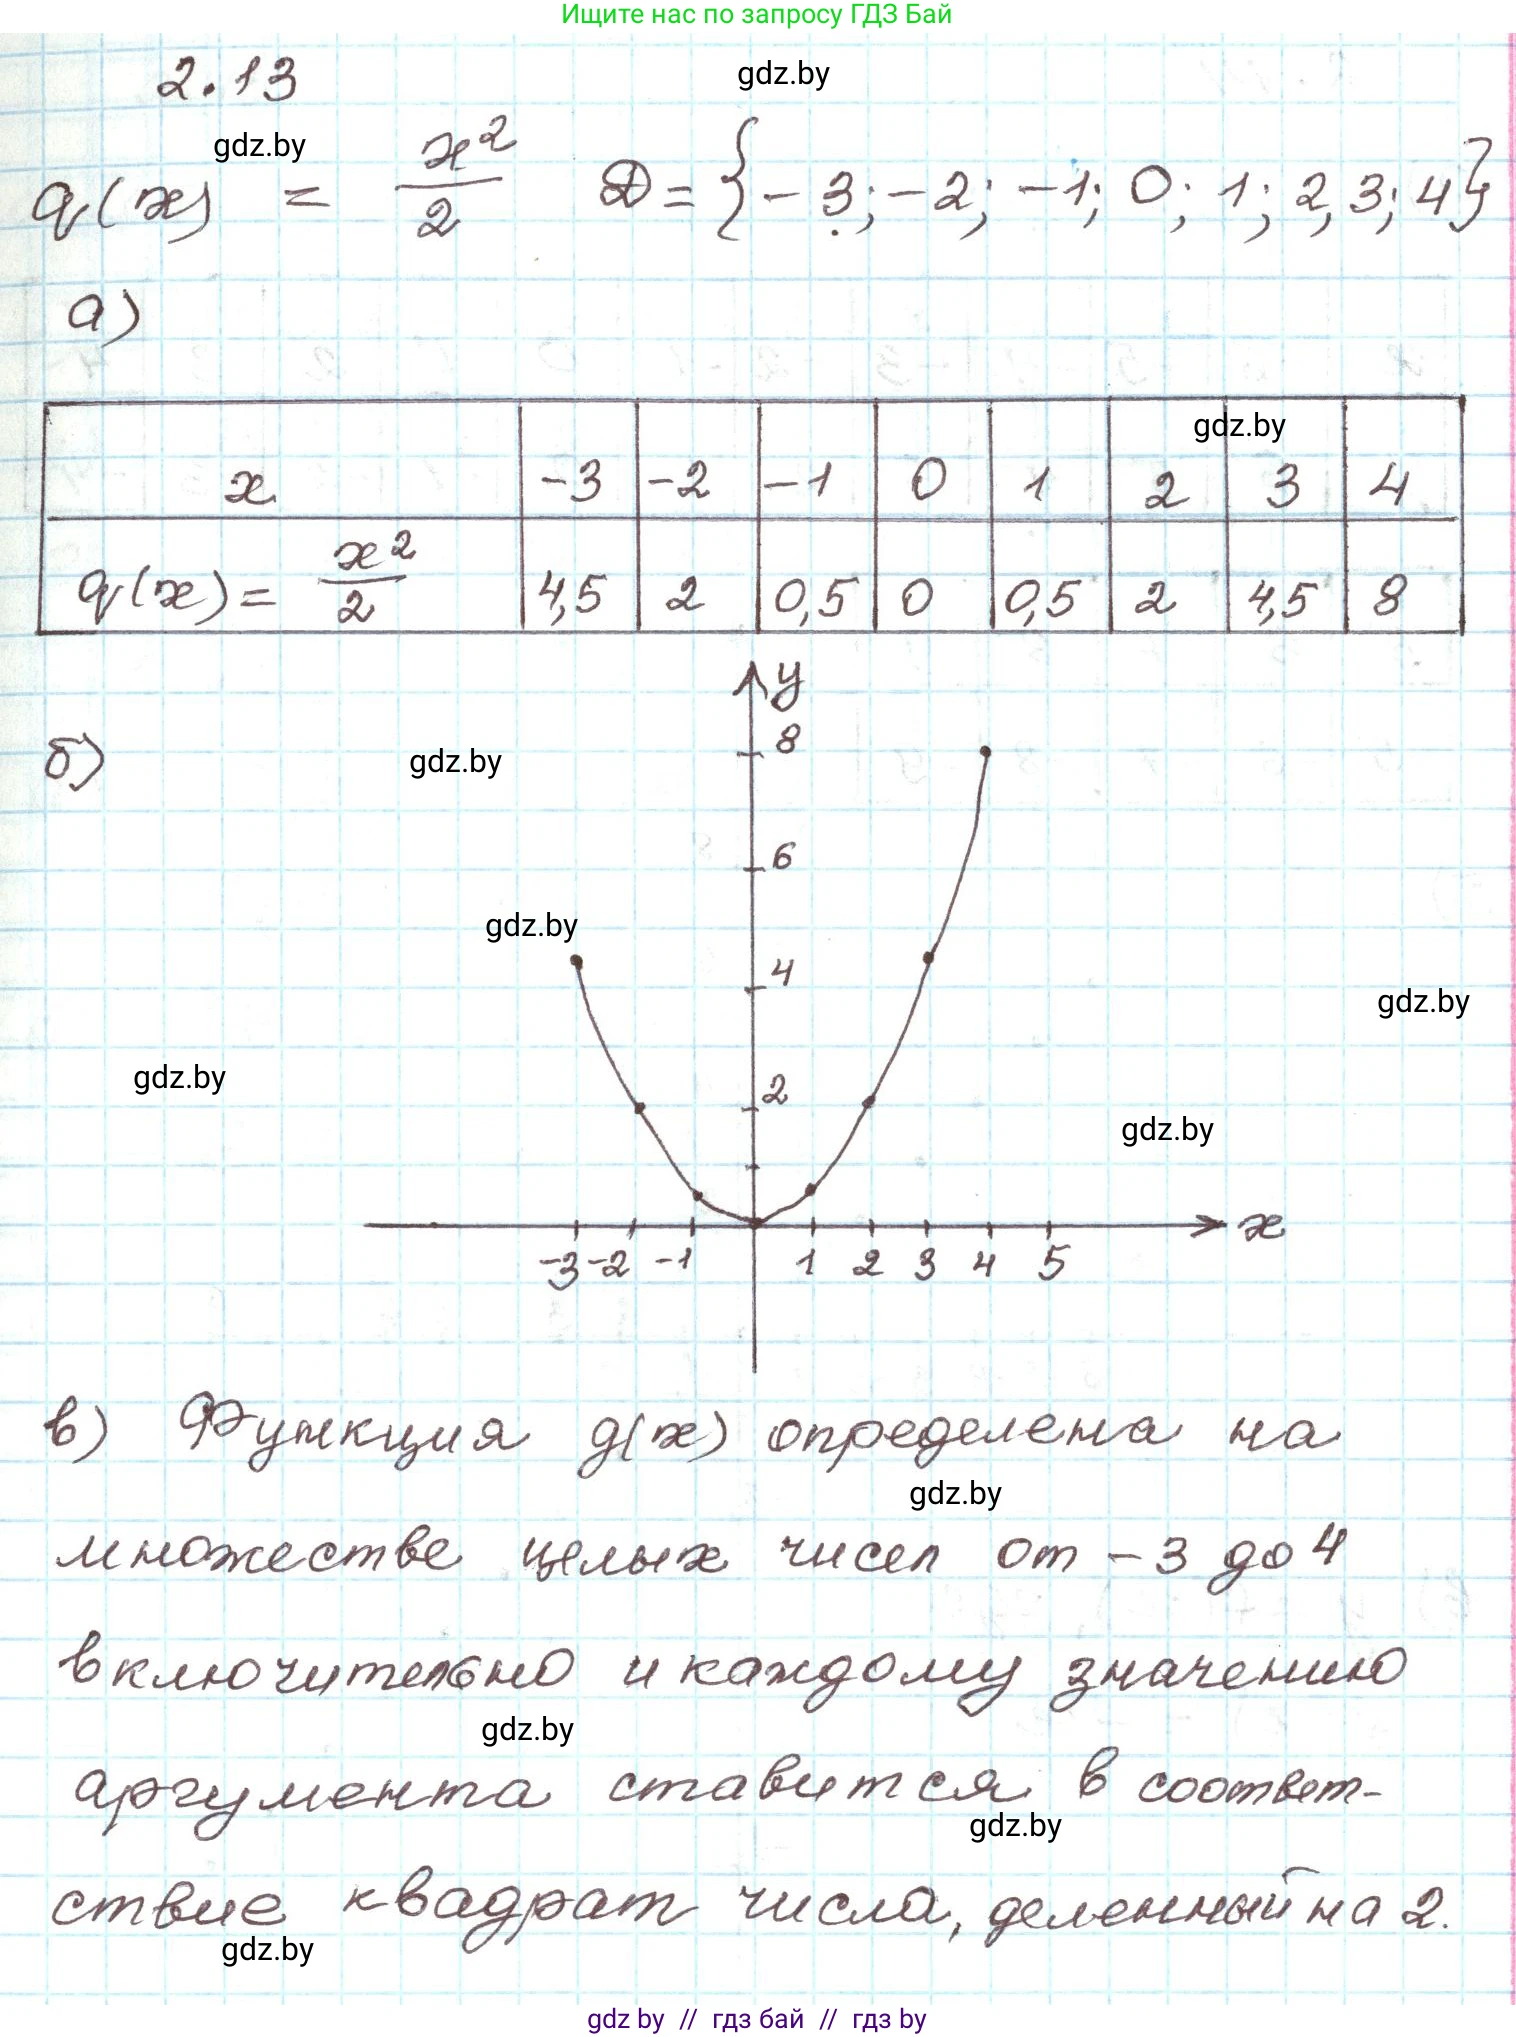 Ищите нас по запросу ГДЗ Бай
2.13
gdz.by
gdz.by
q(x) = x²/2 D = {-3; -2; -1; 0; 1; 2, 3; 4}
а)
gdz.by
x -3 -2 -1 0 1 2 3 4
q(x) = x²/2 4,5 2 0,5 0 0,5 2 4,5 8
y
б)
gdz.by
8
6
gdz.by
4
gdz.by
gdz.by
2
gdz.by
x
-3 -2 -1 1 2 3 4 5
в) Функция g(x) определена на
gdz.by
множестве целых чисел от -3 до 4
включительно и каждому значению
gdz.by
аргумента ставится в соответ-
gdz.by
ствие квадрат числа, деленный на 2.
gdz.by
gdz by // гдз бай // гдз by